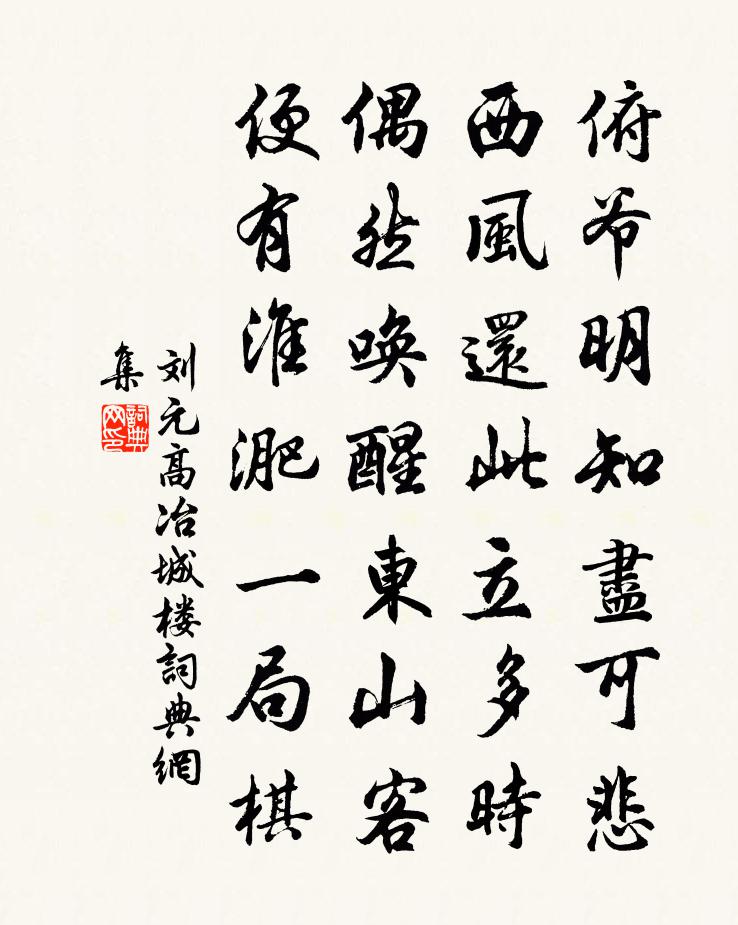 俯爷明知盡可悲
西風還此立多時
偶然唤醒東山客
便有淮淝一局棋
刘元高冶城楼詞典網
集
詞典
网印